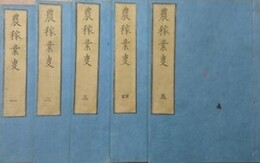 農稼業事 一
農稼業事 二
農稼業事 三
農稼業事 四
農稼業事 五